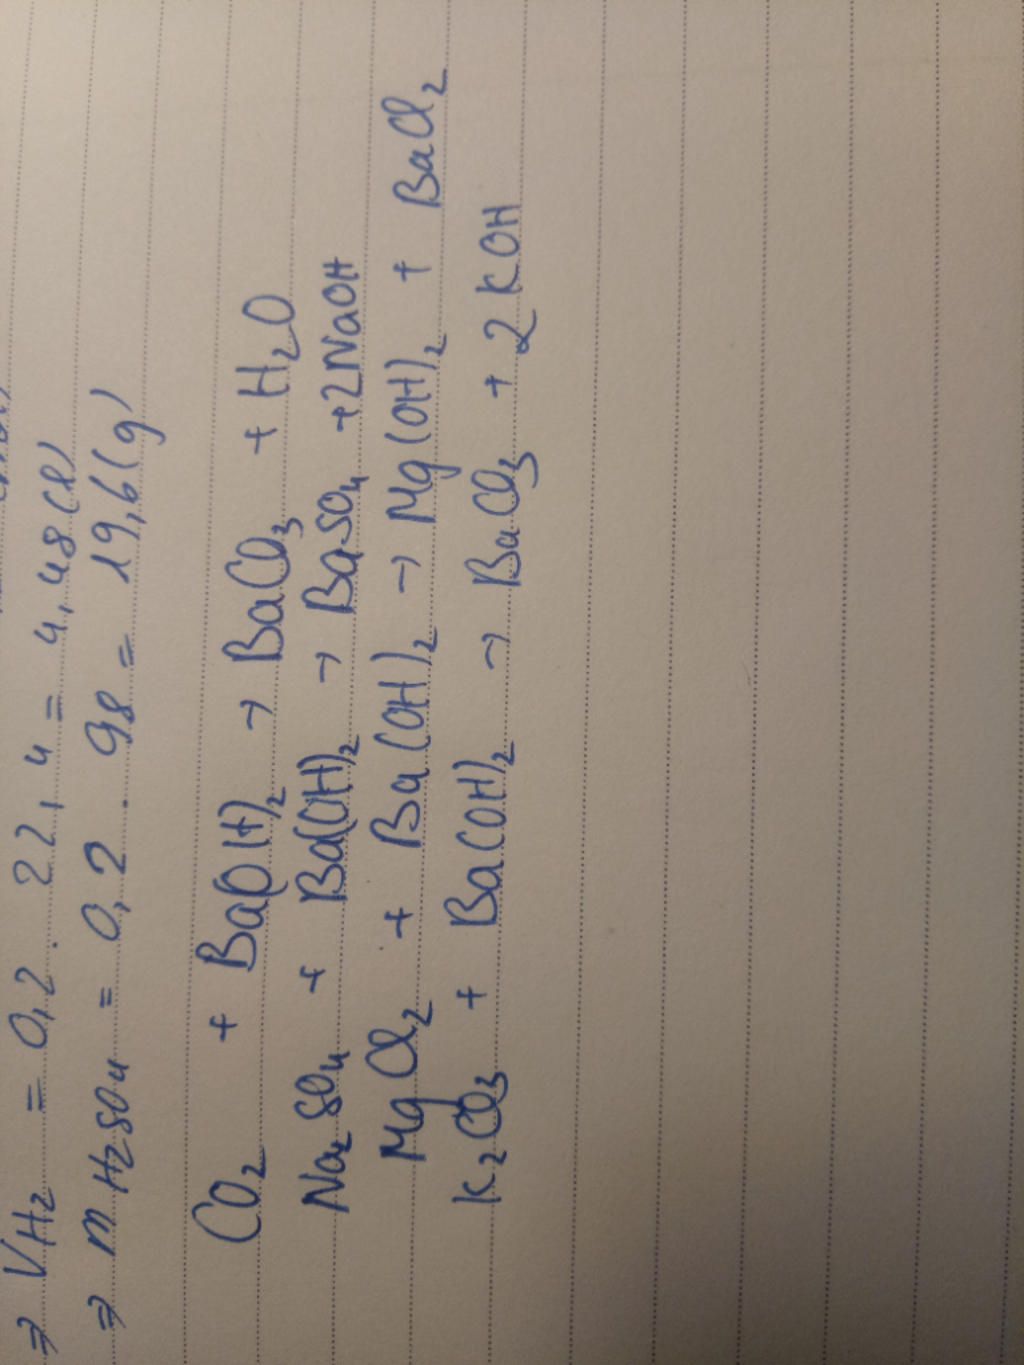 ⇒ VH₂ = 0,2 . 22,4 = 4,48 (l)
⇒ m H₂SO₄ = 0,2 . 98 = 19,6 (g)
CO₂ + Ba(OH)₂ → BaCO₃ + H₂O
Na₂SO₄ + Ba(OH)₂ → BaSO₄ + 2NaOH
MgCl₂ + Ba(OH)₂ → Mg(OH)₂ + BaCl₂
K₂CO₃ + Ba(OH)₂ → BaCO₃ + 2KOH